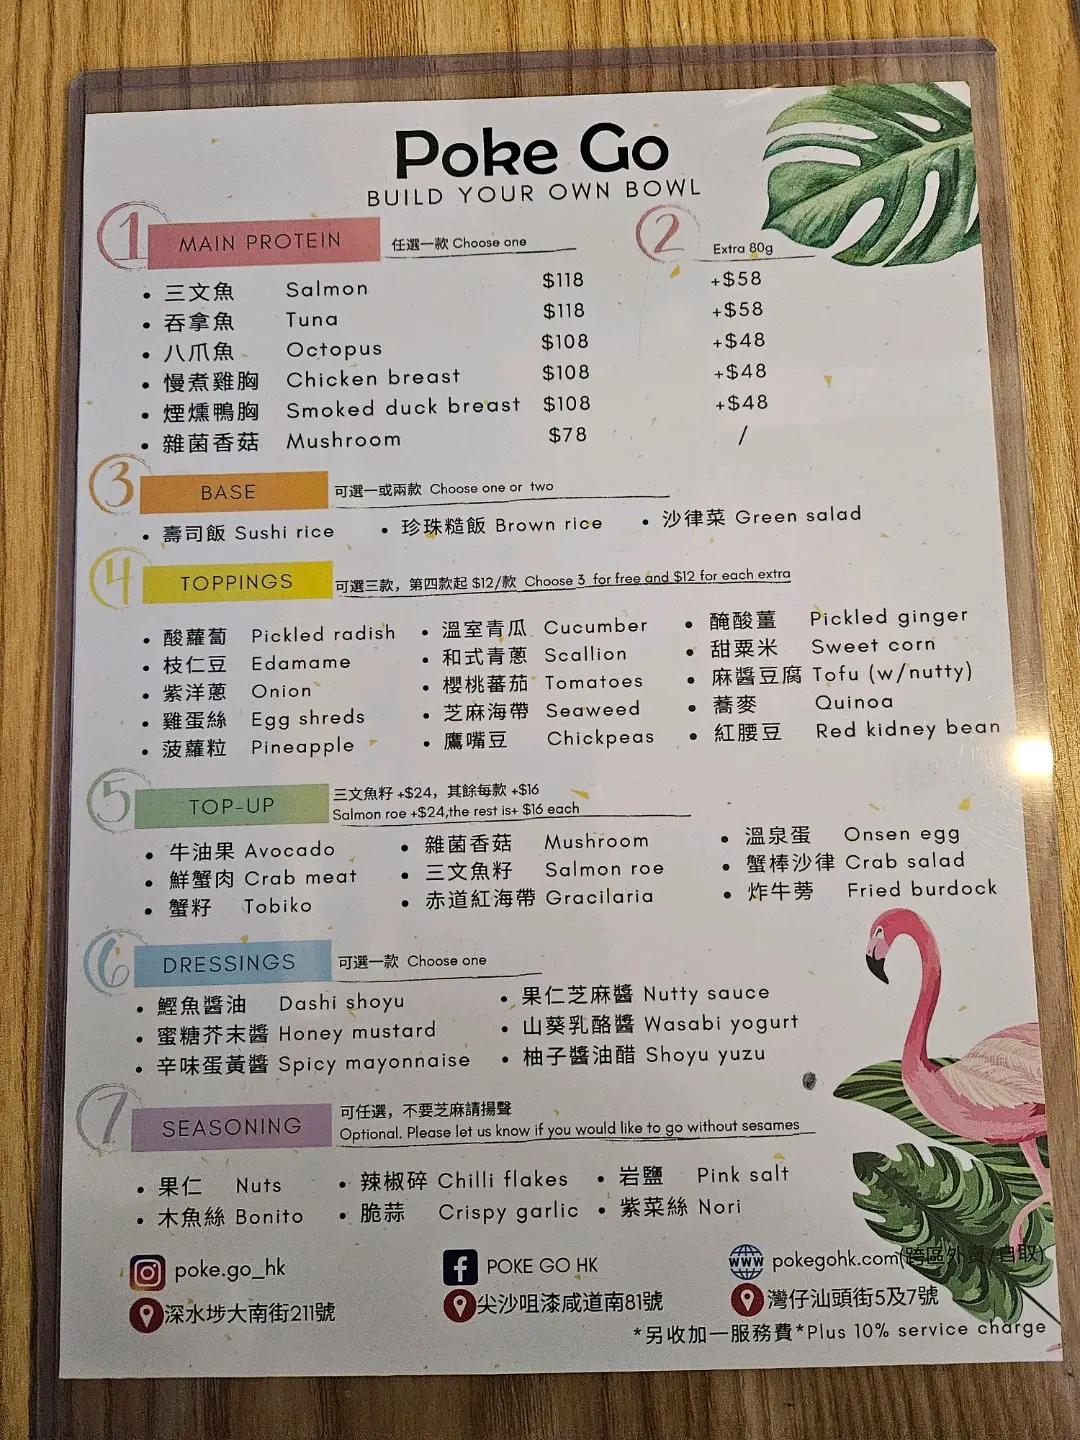 Poke Go
BUILD YOUR OWN BOWL
1 MAIN PROTEIN 任選一款 Choose one 2 Extra 80g
• 三文魚 Salmon $118 +$58
• 吞拿魚 Tuna $118 +$58
• 八爪魚 Octopus $108 +$48
• 慢煮雞胸 Chicken breast $108 +$48
• 煙燻鴨胸 Smoked duck breast $108 +$48
• 雜菌香菇 Mushroom $78 /
3 BASE 可選一或兩款 Choose one or two
• 壽司飯 Sushi rice • 珍珠糙飯 Brown rice • 沙律菜 Green salad
4 TOPPINGS 可選三款，第四款起 $12/款 Choose 3 for free and $12 for each extra
• 酸蘿蔔 Pickled radish • 溫室青瓜 Cucumber • 醃酸薑 Pickled ginger
• 枝仁豆 Edamame • 和式青蔥 Scallion • 甜粟米 Sweet corn
• 紫洋蔥 Onion • 櫻桃蕃茄 Tomatoes • 麻醬豆腐 Tofu (w/nutty)
• 雞蛋絲 Egg shreds • 芝麻海帶 Seaweed • 蕎麥 Quinoa
• 菠蘿粒 Pineapple • 鷹嘴豆 Chickpeas • 紅腰豆 Red kidney bean
5 TOP-UP 三文魚籽 +$24，其餘每款 +$16
Salmon roe +$24,the rest is+ $16 each
• 牛油果 Avocado • 雜菌香菇 Mushroom • 溫泉蛋 Onsen egg
• 鮮蟹肉 Crab meat • 三文魚籽 Salmon roe • 蟹棒沙律 Crab salad
• 蟹籽 Tobiko • 赤道紅海帶 Gracilaria • 炸牛蒡 Fried burdock
6 DRESSINGS 可選一款 Choose one
• 鰹魚醬油 Dashi shoyu • 果仁芝麻醬 Nutty sauce
• 蜜糖芥末醬 Honey mustard • 山葵乳酪醬 Wasabi yogurt
• 辛味蛋黃醬 Spicy mayonnaise • 柚子醬油醋 Shoyu yuzu
7 SEASONING 可任選，不要芝麻請揚聲
Optional. Please let us know if you would like to go without sesames
• 果仁 Nuts • 辣椒碎 Chilli flakes • 岩鹽 Pink salt
• 木魚絲 Bonito • 脆蒜 Crispy garlic • 紫菜絲 Nori
poke.go_hk POKE GO HK www pokegohk.com(跨區外賣/自取)
深水埗大南街211號 尖沙咀漆咸道南81號 灣仔汕頭街5及7號
*另收加一服務費*Plus 10% service charge